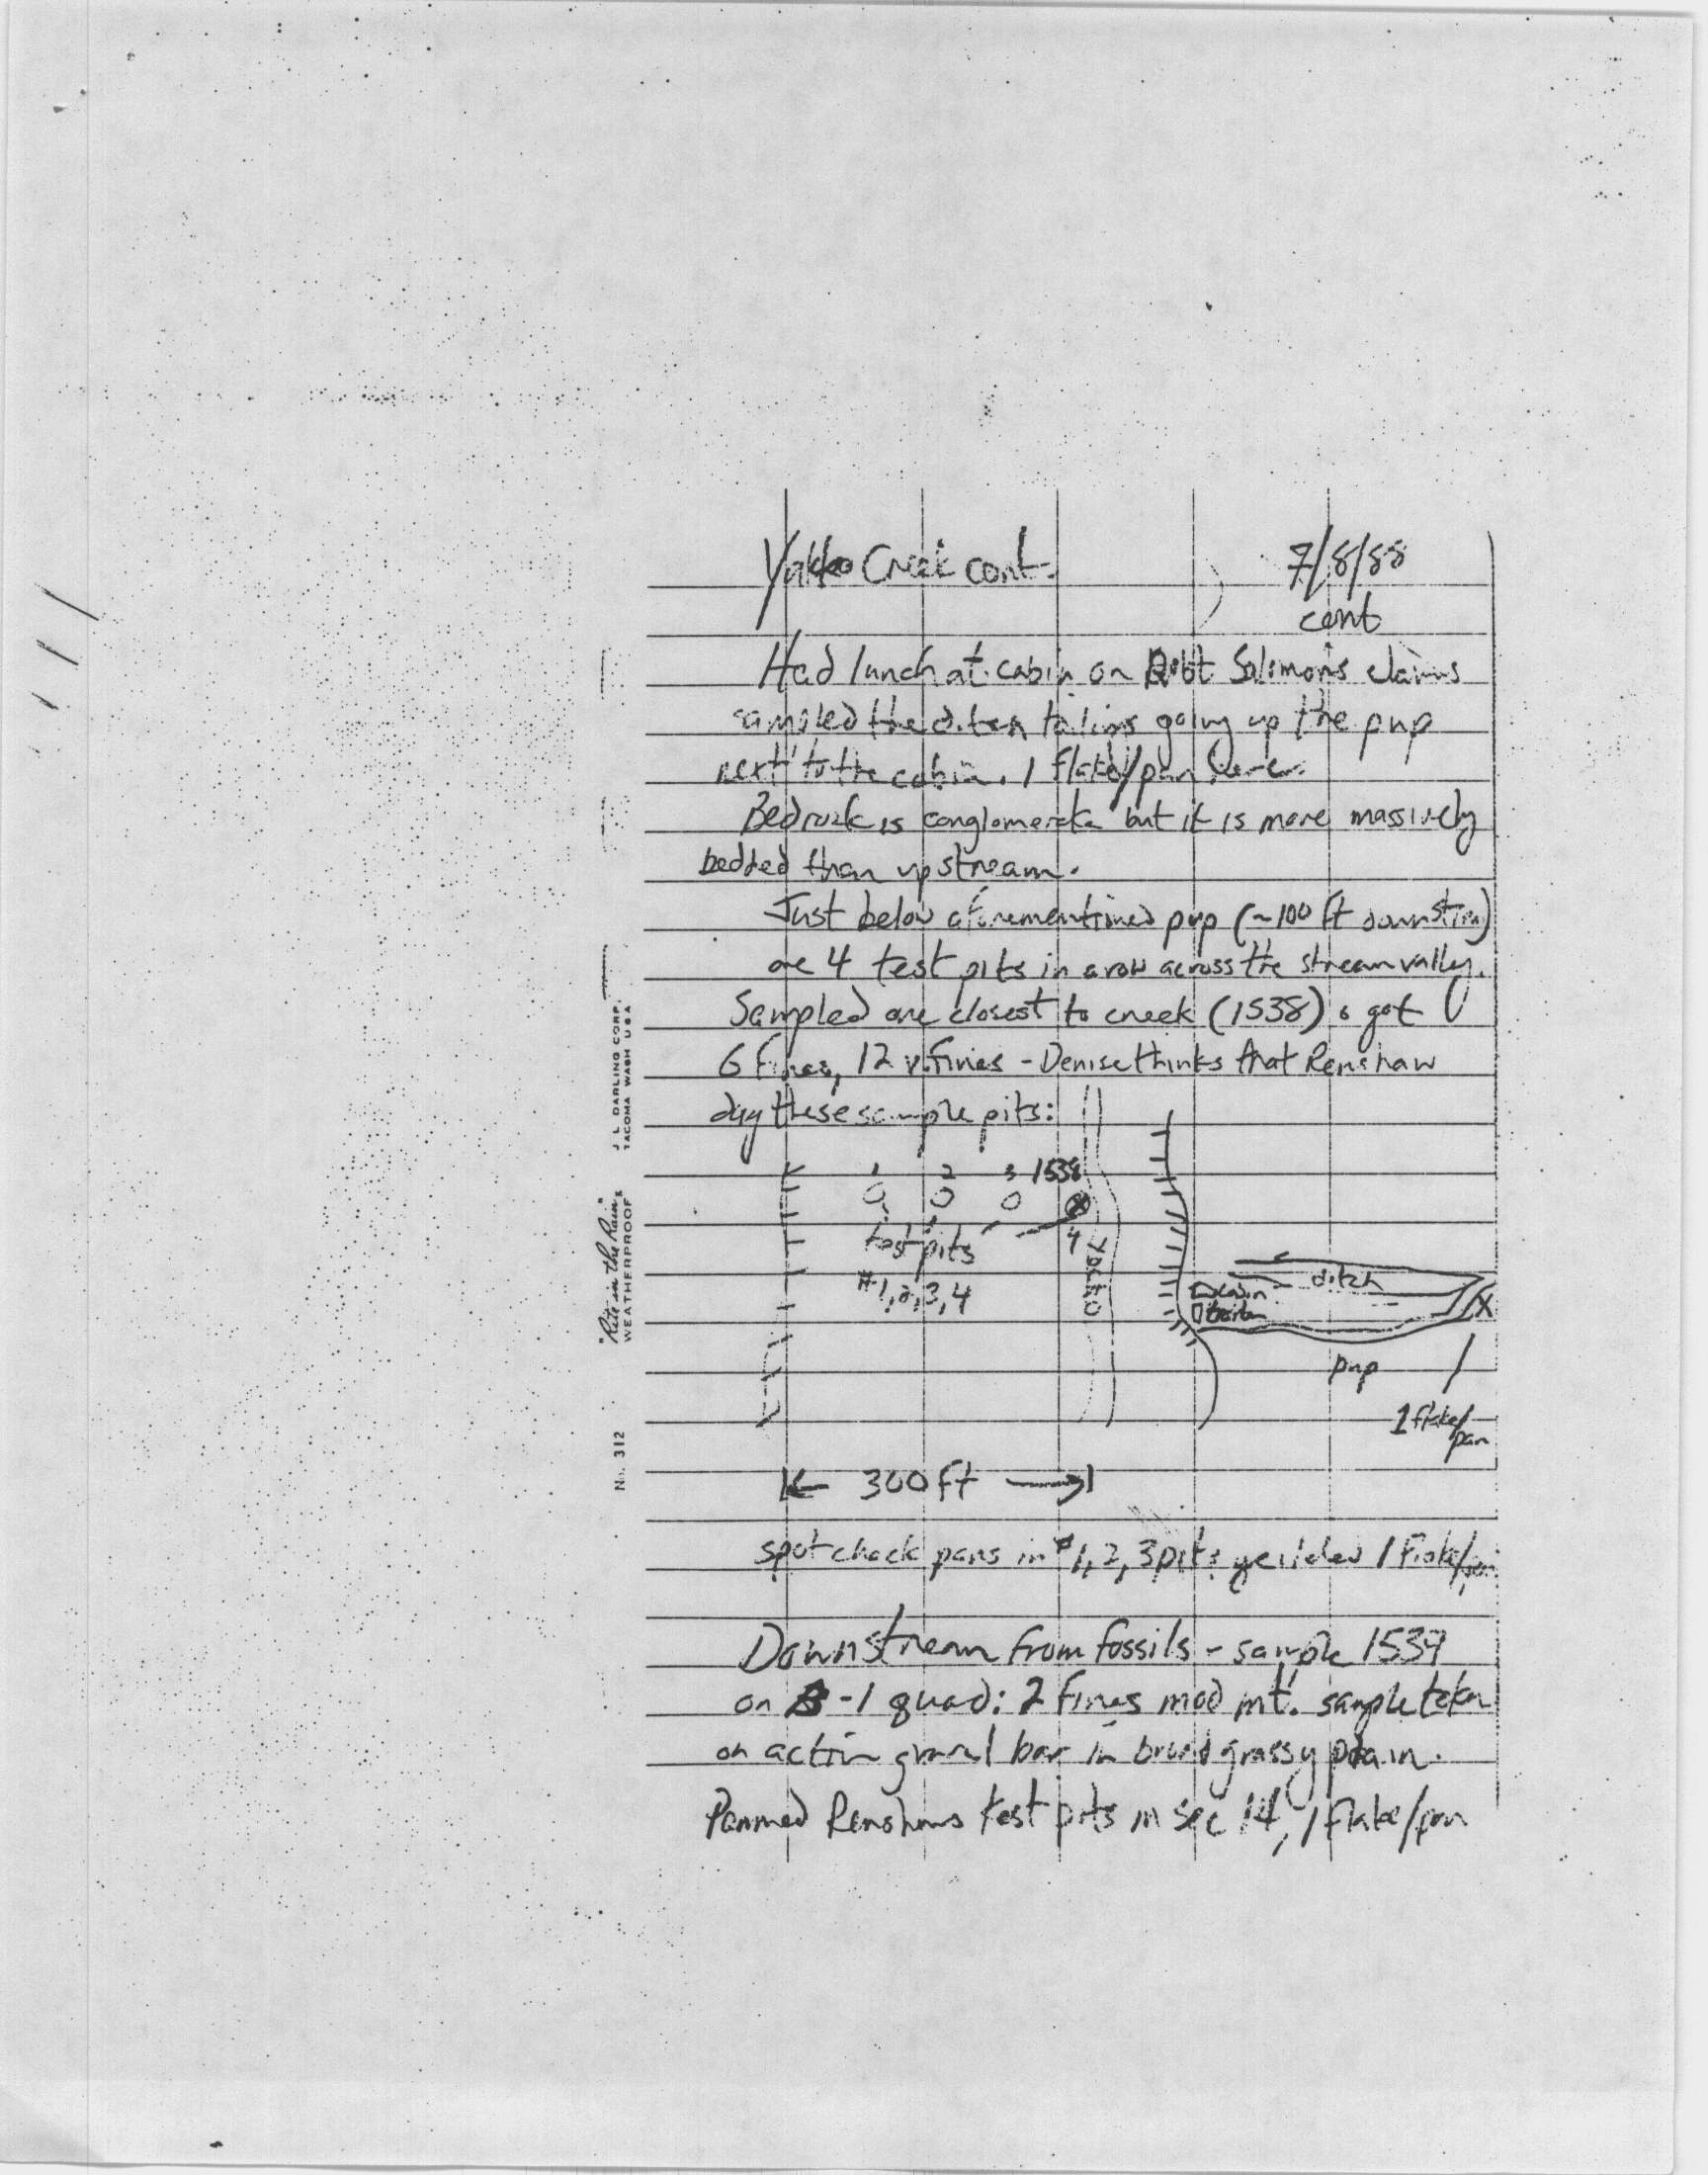 Yakko Creek cont.
7/8/88
cont
Had lunch at cabin on Robt Solimons claims
sampled the ditch tailins going up the pup
next to the cabin. 1 flake/pan here.
Bedrock is conglomerate but it is more massively
bedded than upstream.
Just below aforementioned pup (~100 ft downstream)
are 4 test pits in a row across the stream valley.
Sampled one closest to creek (1538) & got
6 fines, 12 v. fines - Denise thinks that Renshaw
dug these sample pits:
1 2 3 1538
4
test pits
#1,2,3,4
Yacko
ditch
cabin
pup
1 flake/
pan
300 ft
spot check pans in #1, 2, 3 pits yeilded 1 flake/pan
Downstream from fossils - sample 1539
on B-1 quad: 2 fines mod mt. sample taken
on active gravel bar in broad grassy plain.
Panned Renshaws test pits in sec 14, 1 flake/pan
J. L. DARLING CORP.
TACOMA WASH USA
"Rite in the Rain"
WEATHERPROOF
No. 312